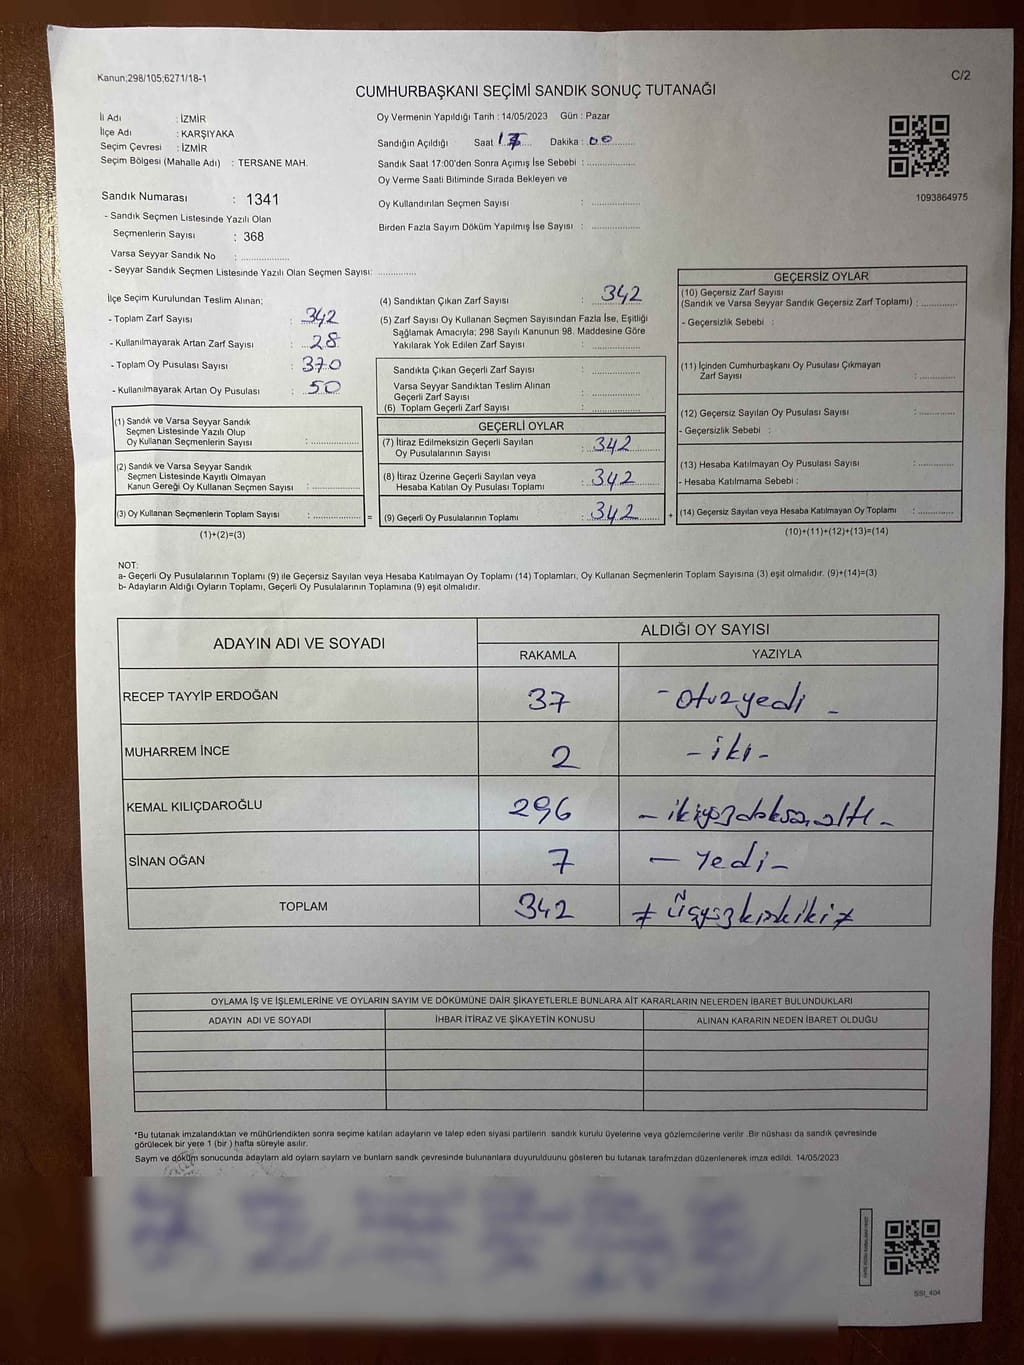 Kanun;298/105;6271/18-1
C/2
CUMHURBAŞKANI SEÇİMİ SANDIK SONUÇ TUTANAĞI
İl Adı : İZMİR
İlçe Adı : KARŞIYAKA
Seçim Çevresi : İZMİR
Seçim Bölgesi (Mahalle Adı) : TERSANE MAH.
Sandık Numarası : 1341
- Sandık Seçmen Listesinde Yazılı Olan
Seçmenlerin Sayısı : 368
Varsa Seyyar Sandık No : ..............
- Seyyar Sandık Seçmen Listesinde Yazılı Olan Seçmen Sayısı: ............
Oy Vermenin Yapıldığı Tarih : 14/05/2023 Gün : Pazar
Sandığın Açıldığı Saat 17 Dakika : 00
Sandık Saat 17:00'den Sonra Açımış İse Sebebi : ..............
Oy Verme Saati Bitiminde Sırada Bekleyen ve
Oy Kullandırılan Seçmen Sayısı : ..............
Birden Fazla Sayım Döküm Yapılmış İse Sayısı : ..............
1093864975
İlçe Seçim Kurulundan Teslim Alınan;
- Toplam Zarf Sayısı : 342
- Kullanılmayarak Artan Zarf Sayısı : 28
- Toplam Oy Pusulası Sayısı : 370
- Kullanılmayarak Artan Oy Pusulası : 50
(1) Sandık ve Varsa Seyyar Sandık
Seçmen Listesinde Yazılı Olup
Oy Kullanan Seçmenlerin Sayısı : ..............
(2) Sandık ve Varsa Seyyar Sandık
Seçmen Listesinde Kayıtlı Olmayan
Kanun Gereği Oy Kullanan Seçmen Sayısı : ..............
(3) Oy Kullanan Seçmenlerin Toplam Sayısı : ..............
(1)+(2)=(3)
=
(4) Sandıktan Çıkan Zarf Sayısı : 342
(5) Zarf Sayısı Oy Kullanan Seçmen Sayısından Fazla İse, Eşitliği
Sağlamak Amacıyla; 298 Sayılı Kanunun 98. Maddesine Göre
Yakılarak Yok Edilen Zarf Sayısı : ..............
Sandıkta Çıkan Geçerli Zarf Sayısı : ..............
Varsa Seyyar Sandıktan Teslim Alınan
Geçerli Zarf Sayısı : ..............
(6) Toplam Geçerli Zarf Sayısı : ..............
GEÇERLİ OYLAR
(7) İtiraz Edilmeksizin Geçerli Sayılan
Oy Pusulalarının Sayısı : 342
(8) İtiraz Üzerine Geçerli Sayılan veya
Hesaba Katılan Oy Pusulası Toplamı : 342
(9) Geçerli Oy Pusulalarının Toplamı : 342
+
GEÇERSİZ OYLAR
(10) Geçersiz Zarf Sayısı
(Sandık ve Varsa Seyyar Sandık Geçersiz Zarf Toplamı) : ............
- Geçersizlik Sebebi :
(11) İçinden Cumhurbaşkanı Oy Pusulası Çıkmayan
Zarf Sayısı : ............
(12) Geçersiz Sayılan Oy Pusulası Sayısı : ............
- Geçersizlik Sebebi :
(13) Hesaba Katılmayan Oy Pusulası Sayısı : ............
- Hesaba Katılmama Sebebi :
(14) Geçersiz Sayılan veya Hesaba Katılmayan Oy Toplamı : ............
(10)+(11)+(12)+(13)=(14)
NOT:
a- Geçerli Oy Pusulalarının Toplamı (9) ile Geçersiz Sayılan veya Hesaba Katılmayan Oy Toplamı (14) Toplamları, Oy Kullanan Seçmenlerin Toplam Sayısına (3) eşit olmalıdır. (9)+(14)=(3)
b- Adayların Aldığı Oyların Toplamı, Geçerli Oy Pusulalarının Toplamına (9) eşit olmalıdır.
ADAYIN ADI VE SOYADI
ALDIĞI OY SAYISI
RAKAMLA YAZIYLA
RECEP TAYYİP ERDOĞAN 37 - otuzyedi -
MUHARREM İNCE 2 - iki -
KEMAL KILIÇDAROĞLU 296 - ikiyüzdoksanaltı -
SİNAN OĞAN 7 - yedi -
TOPLAM 342 ≠ Üçyüzkırkiki ≠
OYLAMA İŞ VE İŞLEMLERİNE VE OYLARIN SAYIM VE DÖKÜMÜNE DAİR ŞİKAYETLERLE BUNLARA AİT KARARLARIN NELERDEN İBARET BULUNDUKLARI
ADAYIN ADI VE SOYADI İHBAR İTİRAZ VE ŞİKAYETİN KONUSU ALINAN KARARIN NEDEN İBARET OLDUĞU
*Bu tutanak imzalandıktan ve mühürlendikten sonra seçime katılan adayların ve talep eden siyasi partilerin sandık kurulu üyelerine veya gözlemcilerine verilir .Bir nüshası da sandık çevresinde
görülecek bir yere 1 (bir ) hafta süreyle asılır.
Saym ve döküm sonucunda adaylarn ald oylarn saylarn ve bunlarn sandk çevresinde bulunanlara duyurulduunu gösteren bu tutanak tarafmzdan düzenlenerek imza edildi. 14/05/2023
SSI_404